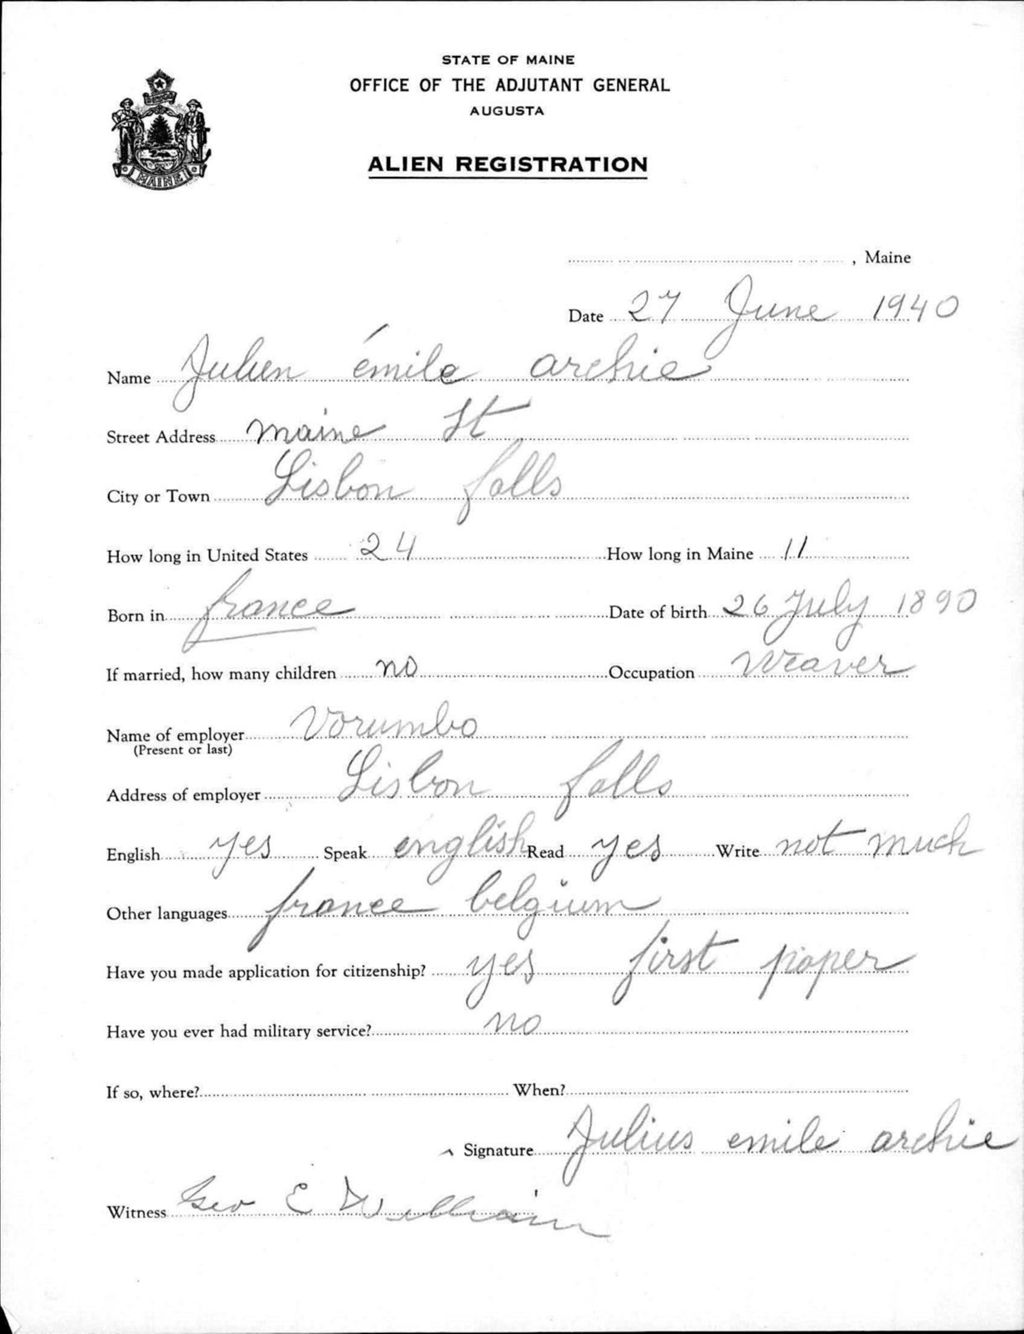 STATE OF MAINE
OFFICE OF THE ADJUTANT GENERAL
AUGUSTA
ALIEN REGISTRATION
MAINE
, Maine
Date 27 June 1940
Name Julien émile archie
Street Address maine St
City or Town Lisbon falls
How long in United States 24 How long in Maine 11
Born in france Date of birth 26 July 1890
If married, how many children no Occupation Weaver
Name of employer Vorumbo
(Present or last)
Address of employer Lisbon falls
English yes Speak english Read yes Write not much
Other languages france belgium
Have you made application for citizenship? yes first paper
Have you ever had military service? no
If so, where? When?
Signature Julius emile archie
Witness Geo E William